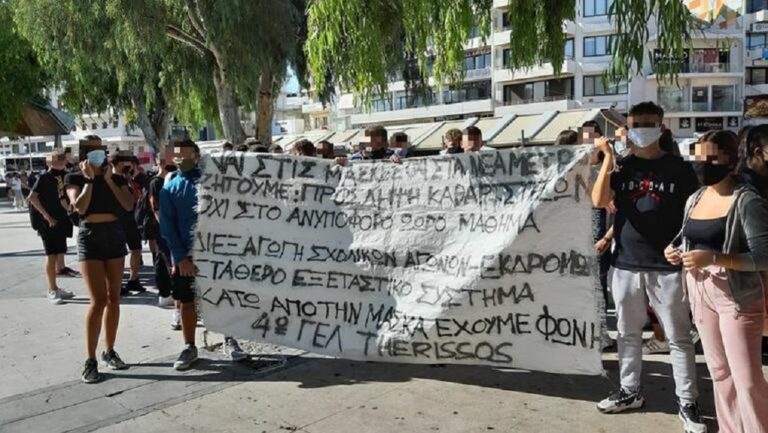 ΝΑΙ ΣΤΙΣ ΜΑΣΚΕΣ ΝΑΙ ΣΤΑ ΝΕΑ ΜΕΤΡΑ
ΖΗΤΟΥΜΕ: ΠΡΟΣΛΗΨΗ ΚΑΘΑΡΙΣΤΡΙΩΝ
ΟΧΙ ΣΤΟ ΑΝΥΠΟΦΟΡΟ 2ΩΡΟ ΜΑΘΗΜΑ
ΔΙΕΞΑΓΩΓΗ ΣΧΟΛΙΚΩΝ ΑΓΩΝΩΝ-ΕΚΔΡΟΜΩΝ
ΣΤΑΘΕΡΟ ΕΞΕΤΑΣΤΙΚΟ ΣΥΣΤΗΜΑ
ΚΑΤΩ ΑΠΟ ΤΗΝ ΜΑΣΚΑ ΕΧΟΥΜΕ ΦΩΝΗ
4ο ΓΕΛ THERISSOS